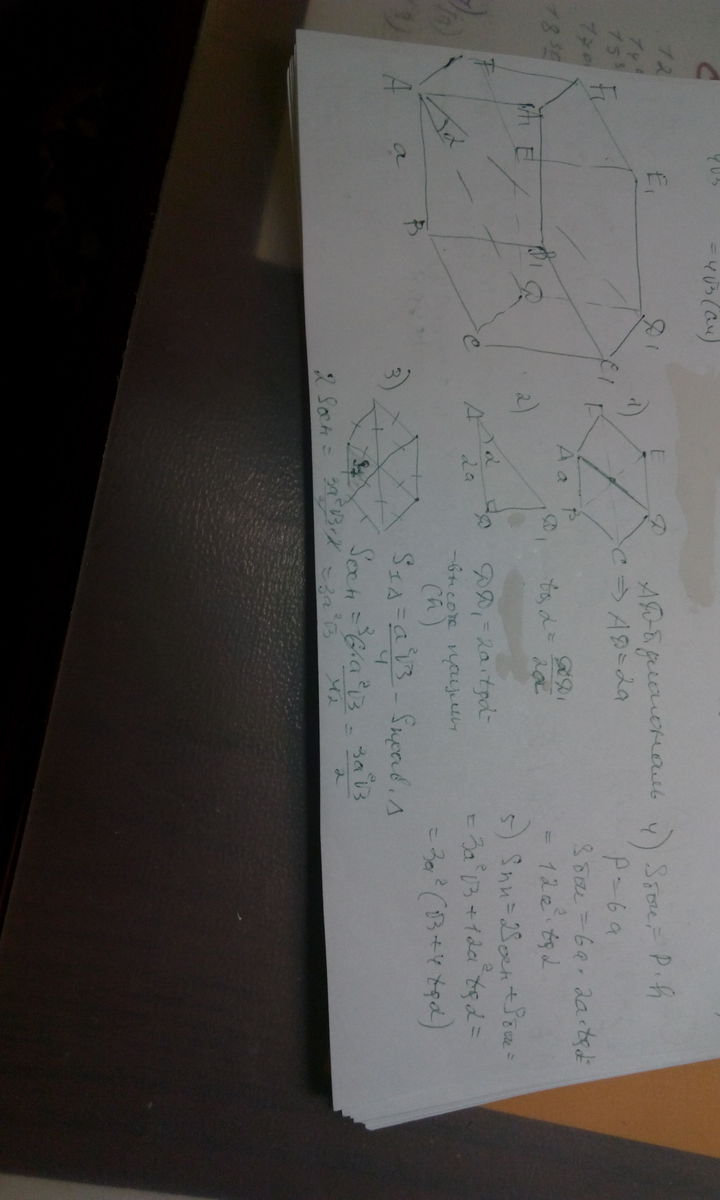 = 4√3 (см)
F₁
E₁
D₁
C₁
B₁
A₁
F
E
D
A
a
B
C
α
1)
F
E
D
A
a
B
C
AD - диагональ
⇒ AD = 2a
2)
A
α
2a
D
D₁
tg α = DD₁/2a
DD₁ = 2a·tgα -
- высота призмы
(h)
3)
S₁Δ = a²√3/4 - Sправ.Δ
Sосн = 6a²√3/42 = 3a²√3/2
2Sосн = 3a²√3·2/2 = 3a²√3
4) Sбок = P·h
P = 6a
Sбок = 6a·2a·tgα =
= 12a²·tgα
5) Sпп = 2Sосн + Sбок =
= 3a²√3 + 12a²tgα =
= 3a²(√3 + 4tgα)